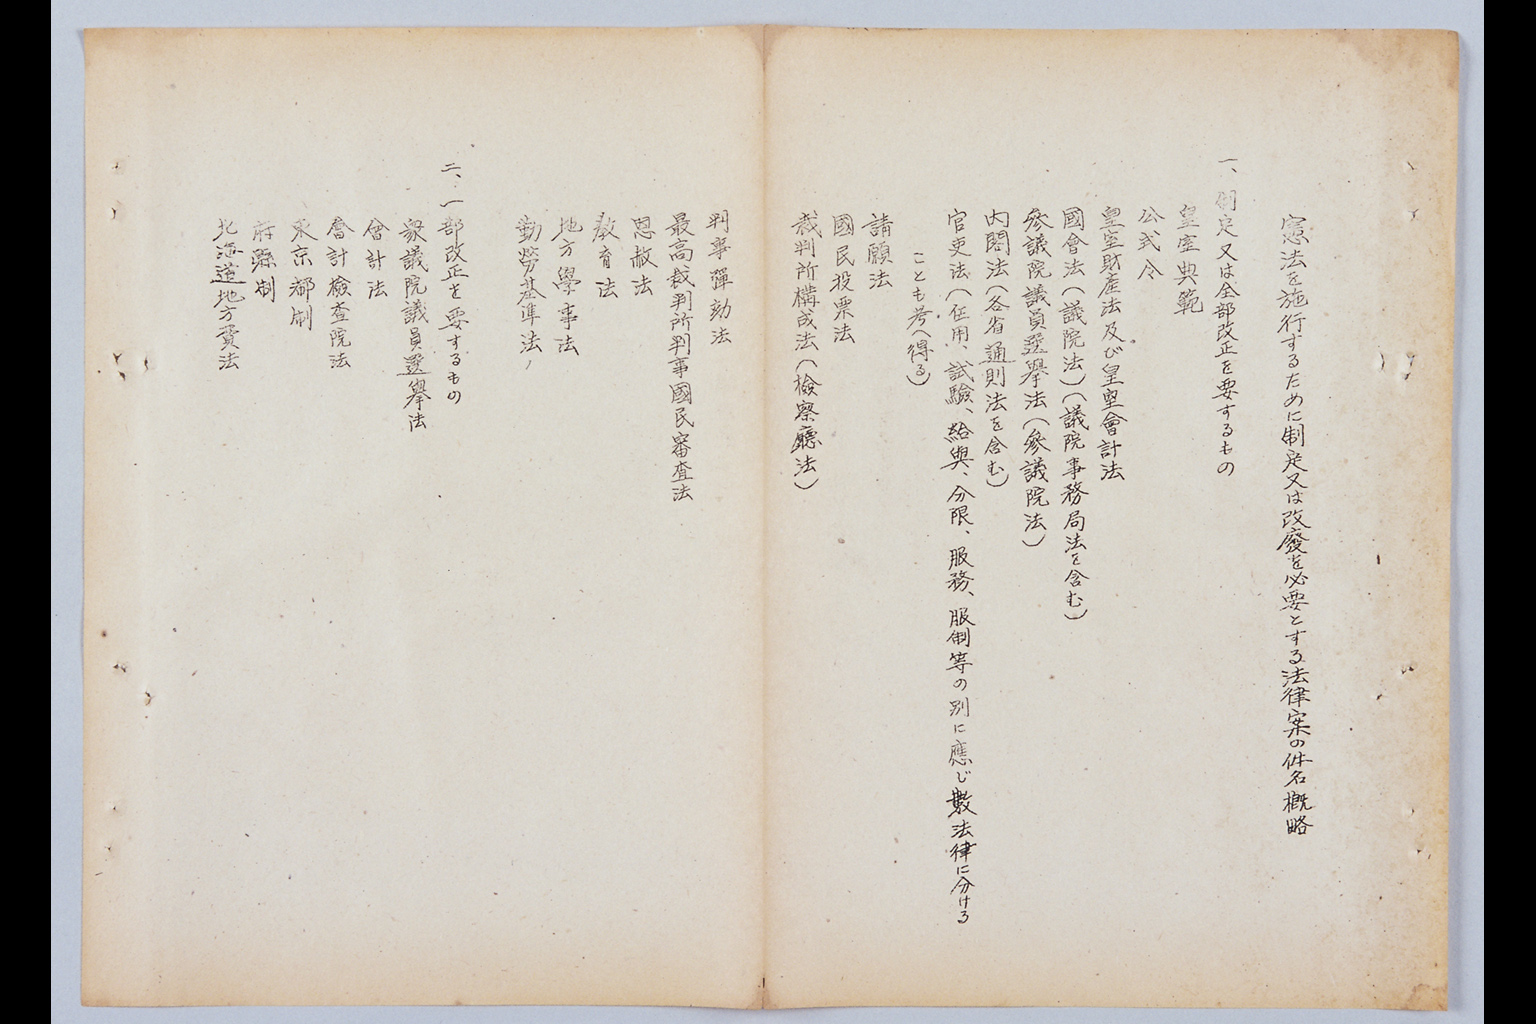 憲法を施行するために制定又は改廢を必要とする法律案の件名概略
一、制定又は全部改正を要するもの
皇室典範
公式令
皇室財産法及び皇室會計法
國會法（議院法）（議院事務局法を含む）
參議院議員選擧法（參議院法）
内閣法（各省通則法を含む）
官吏法（任用、試驗、給與、分限、服務、服制等の別に應じ數法律に分ける
ことも考へ得る）
請願法
國民投票法
裁判所構成法（檢察廳法）
判事彈劾法
最高裁判所判事國民審査法
恩赦法
教育法
地方學事法
勤勞基準法
二、一部改正を要するもの
衆議院議員選擧法
會計法
會計檢査院法
東京都制
府縣制
北海道地方費法